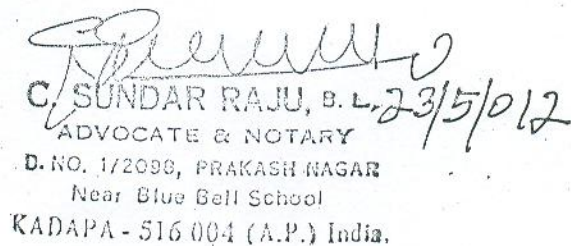 C. SUNDAR RAJU, B. L. 23/5/012
ADVOCATE & NOTARY
D. NO. 1/2098, PRAKASH NAGAR
Near Blue Bell School
KADAPA - 516 004 (A.P.) India.